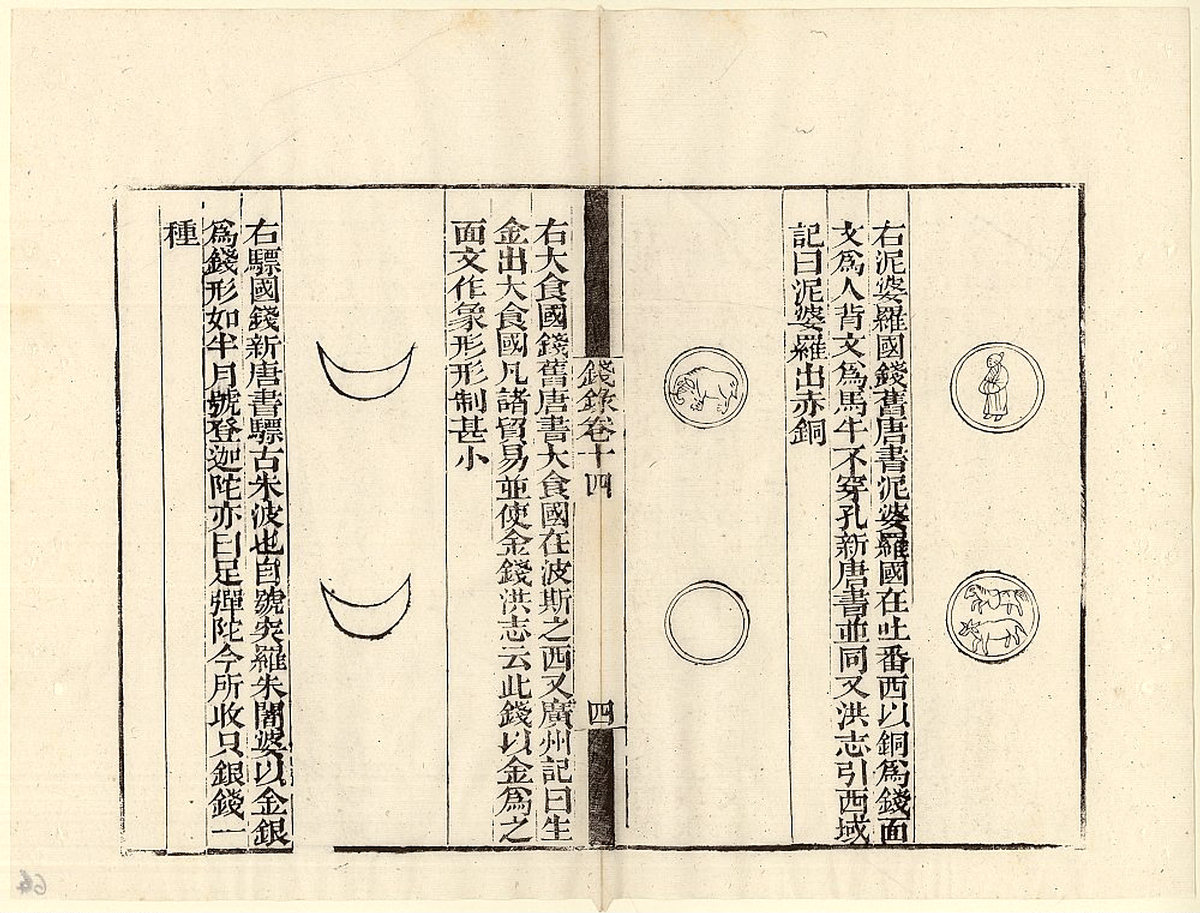 右泥婆羅國錢舊唐書泥婆羅國在吐番西以銅爲錢面
文爲人背文爲馬牛不穿孔新唐書並同又洪志引西域
記曰泥婆羅出赤銅
錢錄卷十四
四
右大食國錢舊唐書大食國在波斯之西又廣州記曰生
金出大食國凡諸貿易並使金錢洪志云此錢以金爲之
面文作象形形制甚小
右驃國錢新唐書驃古朱波也自號突羅朱闍婆以金銀
爲錢形如半月號登迦陀亦曰足彈陀今所收只銀錢一
種
64